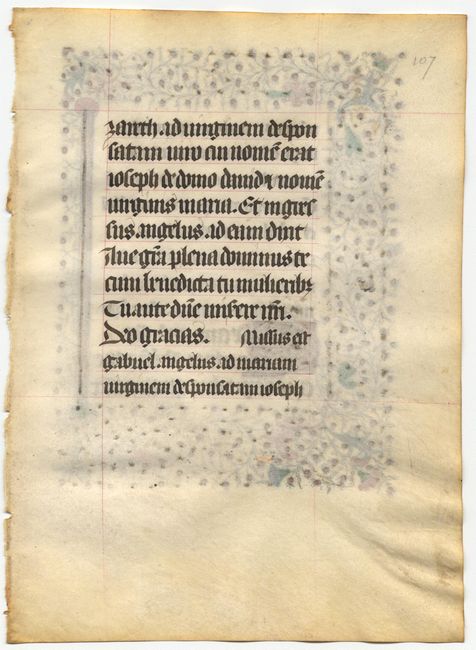 107
zareth. ad uirginem despon
satam uiro cui nomē erat
ioseph de domo dauid ⁊ nomē
uirginis maria. Et ingres
sus. angelus. ad eam dixit
Aue grā plena dominus te
cum benedicta tu mulieribꝫ
Tu autē dn̄e miserere nr̄i.
Deo gracias. Missus est
gabriel. angelus. ad mariam
uirginem desponsatam ioseph